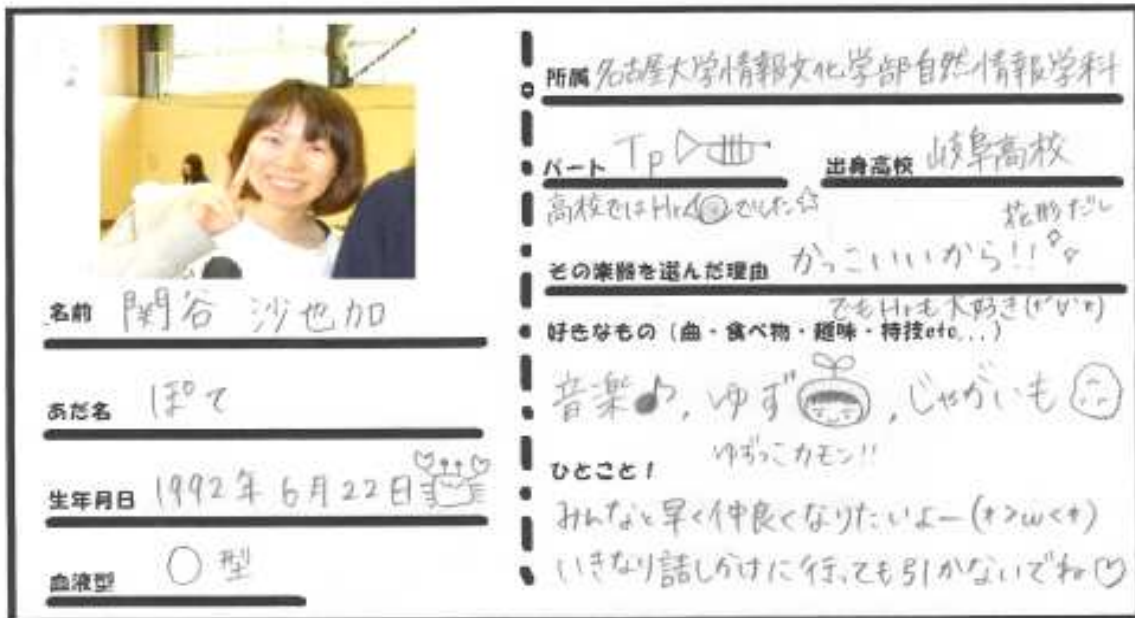 名前 関谷 沙也加
あだ名 ぽて
生年月日 1992年6月22日
血液型 O型
所属 名古屋大学情報文化学部自然情報学科
パート Tp
出身高校 岐阜高校
高校ではHrでした☆
花形だし
その楽器を選んだ理由 かっこいいから!!
でもHrも大好き(*'∀'*)
好きなもの(曲・食べ物・趣味・特技etc...)
音楽♪, ゆず, じゃがいも
ゆずっこカモン!!
ひとこと!
みんなと早く仲良くなりたいよー(*>w<*)
いきなり話しかけに行っても引かないでね♡